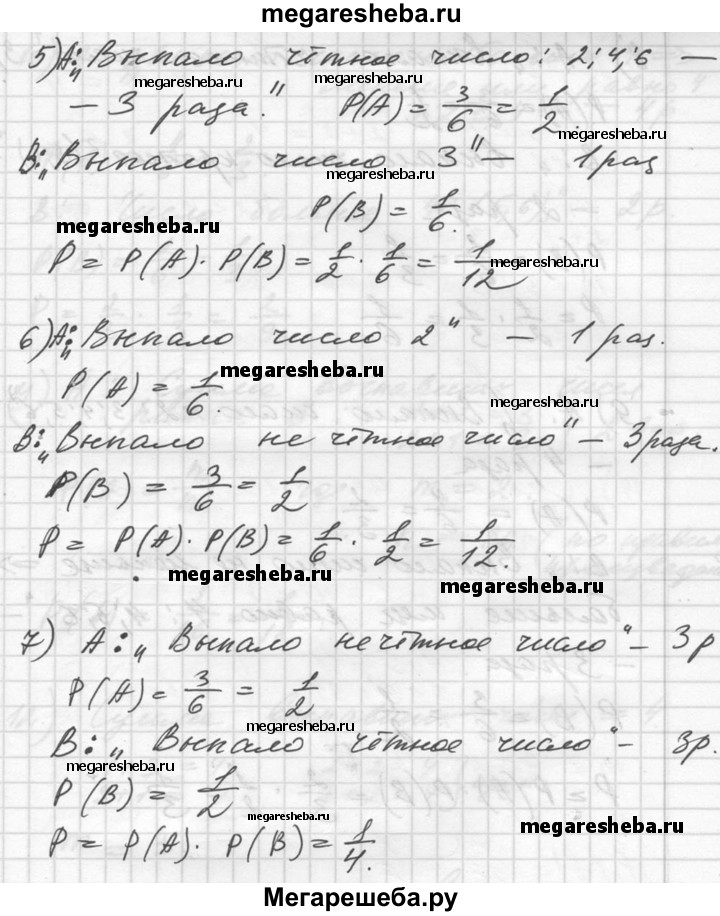 megaresheba.ru
5) А: „Выпало чётное число: 2; 4; 6 —
megaresheba.ru megaresheba.ru
— 3 раза." P(A) = 3/6 = 1/2.
megaresheba.ru
В: „Выпало число 3" — 1 раз
P(B) = 1/6.
megaresheba.ru
P = P(A) · P(B) = 1/2 · 1/6 = 1/12
megaresheba.ru
6) А: „Выпало число 2" — 1 раз.
P(A) = 1/6.
megaresheba.ru
megaresheba.ru
В: „Выпало не чётное число" — 3 раза.
P(B) = 3/6 = 1/2
P = P(A) · P(B) = 1/6 · 1/2 = 1/12.
megaresheba.ru megaresheba.ru
7) А: „Выпало нечётное число" — 3 р
P(A) = 3/6 = 1/2
megaresheba.ru
В: „Выпало чётное число" — 3р.
megaresheba.ru
P(B) = 1/2
megaresheba.ru
megaresheba.ru
P = P(A) · P(B) = 1/4.
Мегарешеба.ру